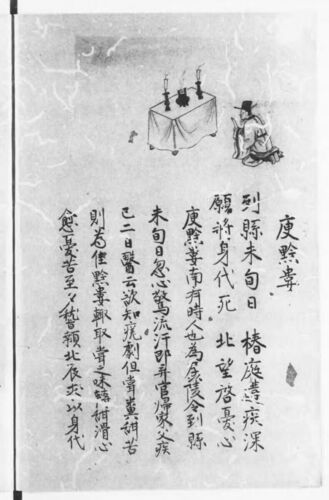 庾黔婁
到縣未旬日　椿庭遺疾深
願將身代死　北望啓憂心
庾黔婁南斉時人也為孱陵令到縣
未旬日忽心驚流汗即弃官歸家父疾
已二日醫云欲知瘥劇但嘗糞甜苦
則為佳黔婁輒取嘗之味轉甜滑心
愈憂苦至夕稽顙北辰求以身代